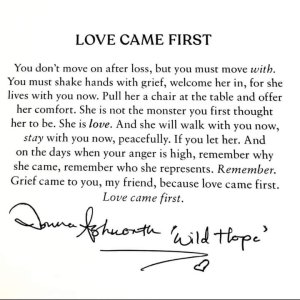 LOVE CAME FIRST
You don't move on after loss, but you must move with.
You must shake hands with grief, welcome her in, for she
lives with you now. Pull her a chair at the table and offer
her comfort. She is not the monster you first thought
her to be. She is love. And she will walk with you now,
stay with you now, peacefully. If you let her. And
on the days when your anger is high, remember why
she came, remember who she represents. Remember.
Grief came to you, my friend, because love came first.
Love came first.
Donna Ashworth 'Wild Hope'